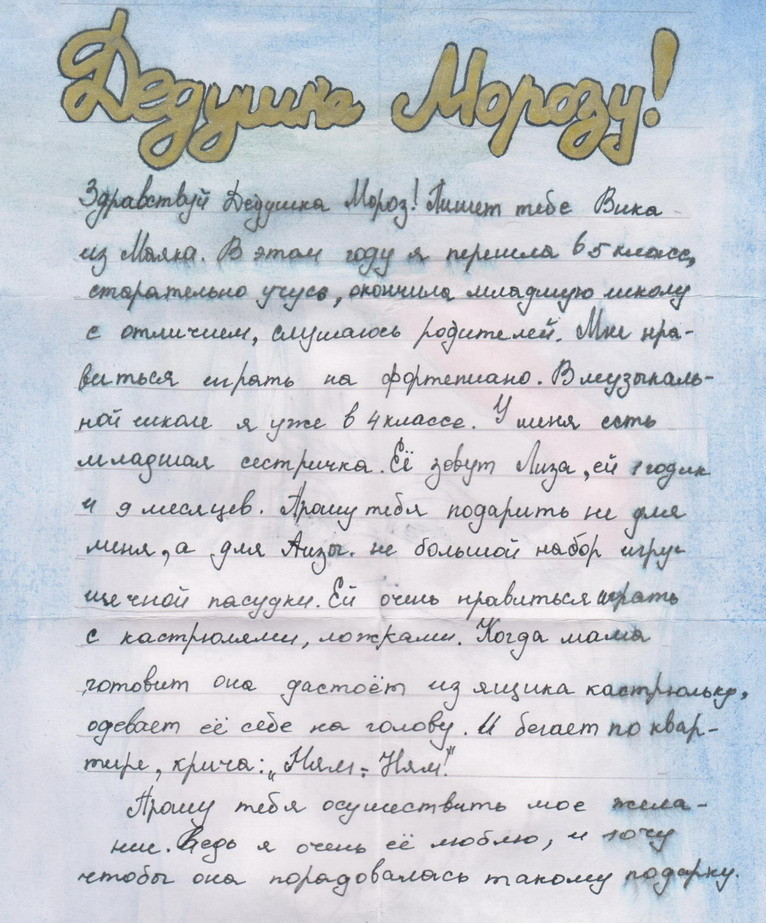 Дедушка Морозу!
Здравствуй Дедушка Мороз! Пишет тебе Вика
из Маяка. В этом году я перешла в 5 класс,
старательно учусь, окончила младшую школу
с отличием, слушаюсь родителей. Мне нра-
виться играть на фортепиано. В музыкаль-
ной школе я уже в 4 классе. У меня есть
младшая сестричка. Её зовут Лиза, ей 1 годик
и 9 месяцев. Прошу тебя подарить не для
меня, а для Лизы. не большой набор игру-
шечной пасудки. Ей очень нравиться играть
с кастрюлями, ложками. Когда мама
готовит она дастоёт из ящика кастрюльку,
одевает её себе на голову. И бегает по квар-
тире, крича: „Ням-Ням!"
Прошу тебя осушествить мое жела-
ние. Ведь я очень её люблю, и хочу
чтобы она порадовалась такому подарку.